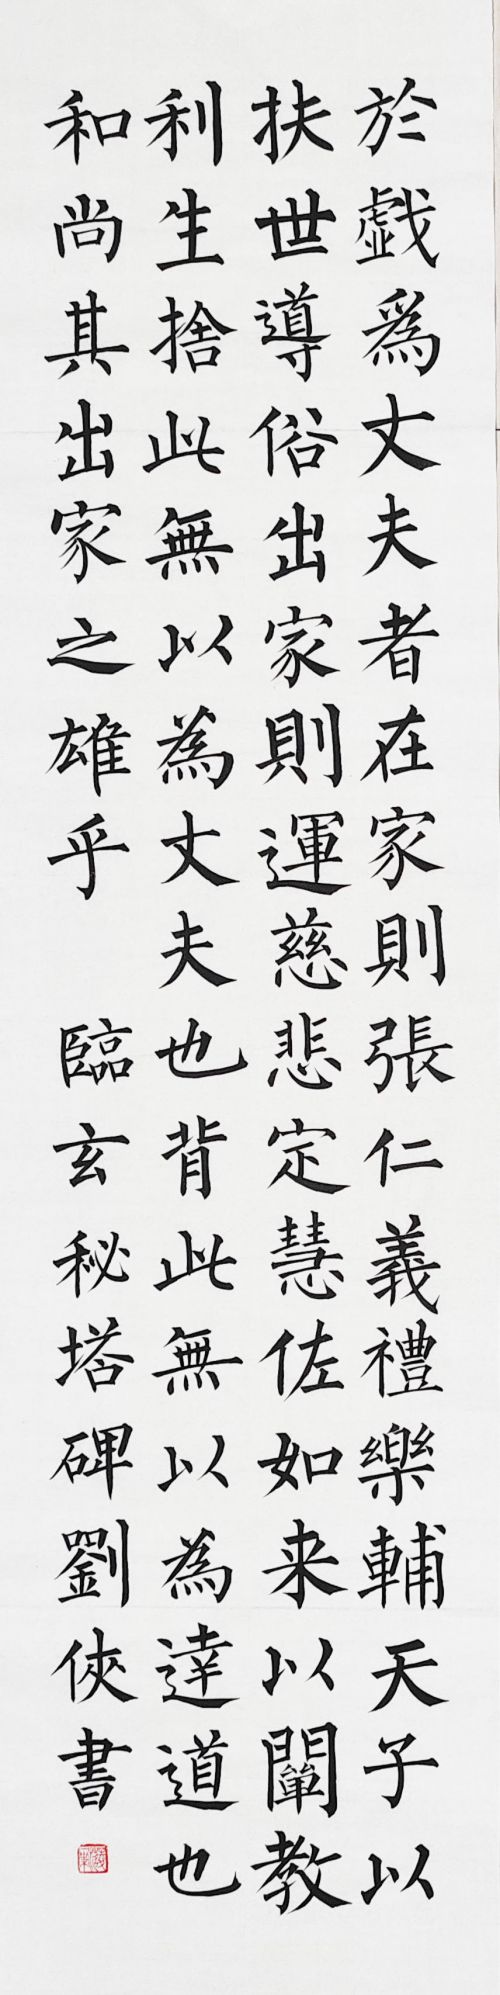 於戯爲丈夫者在家則張仁義禮樂輔天子以
扶世導俗出家則運慈悲定慧佐如来以闡教
利生捨此無以為丈夫也背此無以為達道也
和尚其出家之雄乎 臨玄秘塔碑劉俠書